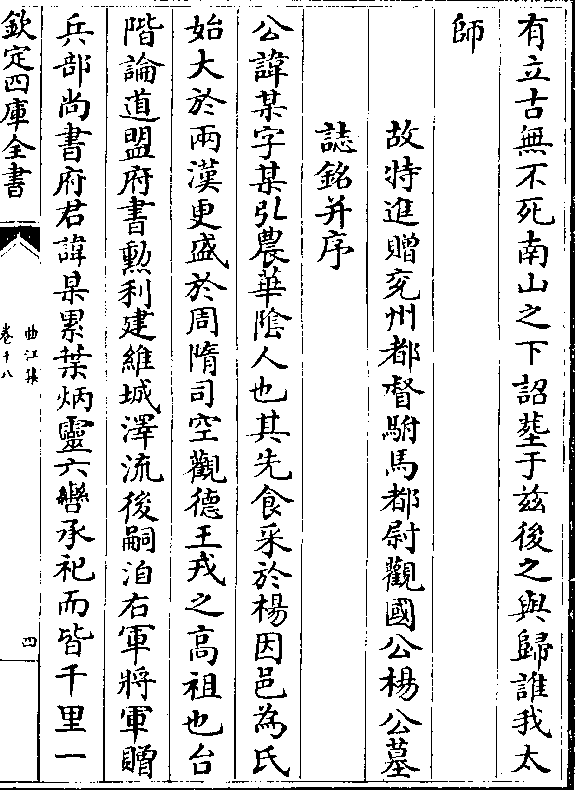 有立古無不死南山之下詔塟于兹後之與歸誰我太
師
故特進贈兖州都督駙馬都尉觀國公楊公墓
誌銘并序
公諱某字某弘農華隂人也其先食采於楊因邑為氏
始大於兩漢更盛於周隋司空觀德王𢦙之高祖也台
階論道盟府書勲利建維城澤流後嗣洎右軍將軍贈
兵部尚書府君諱某累葉炳靈六轡承祀而皆千里一
欽定四庫全書
曲江集
卷十八
四